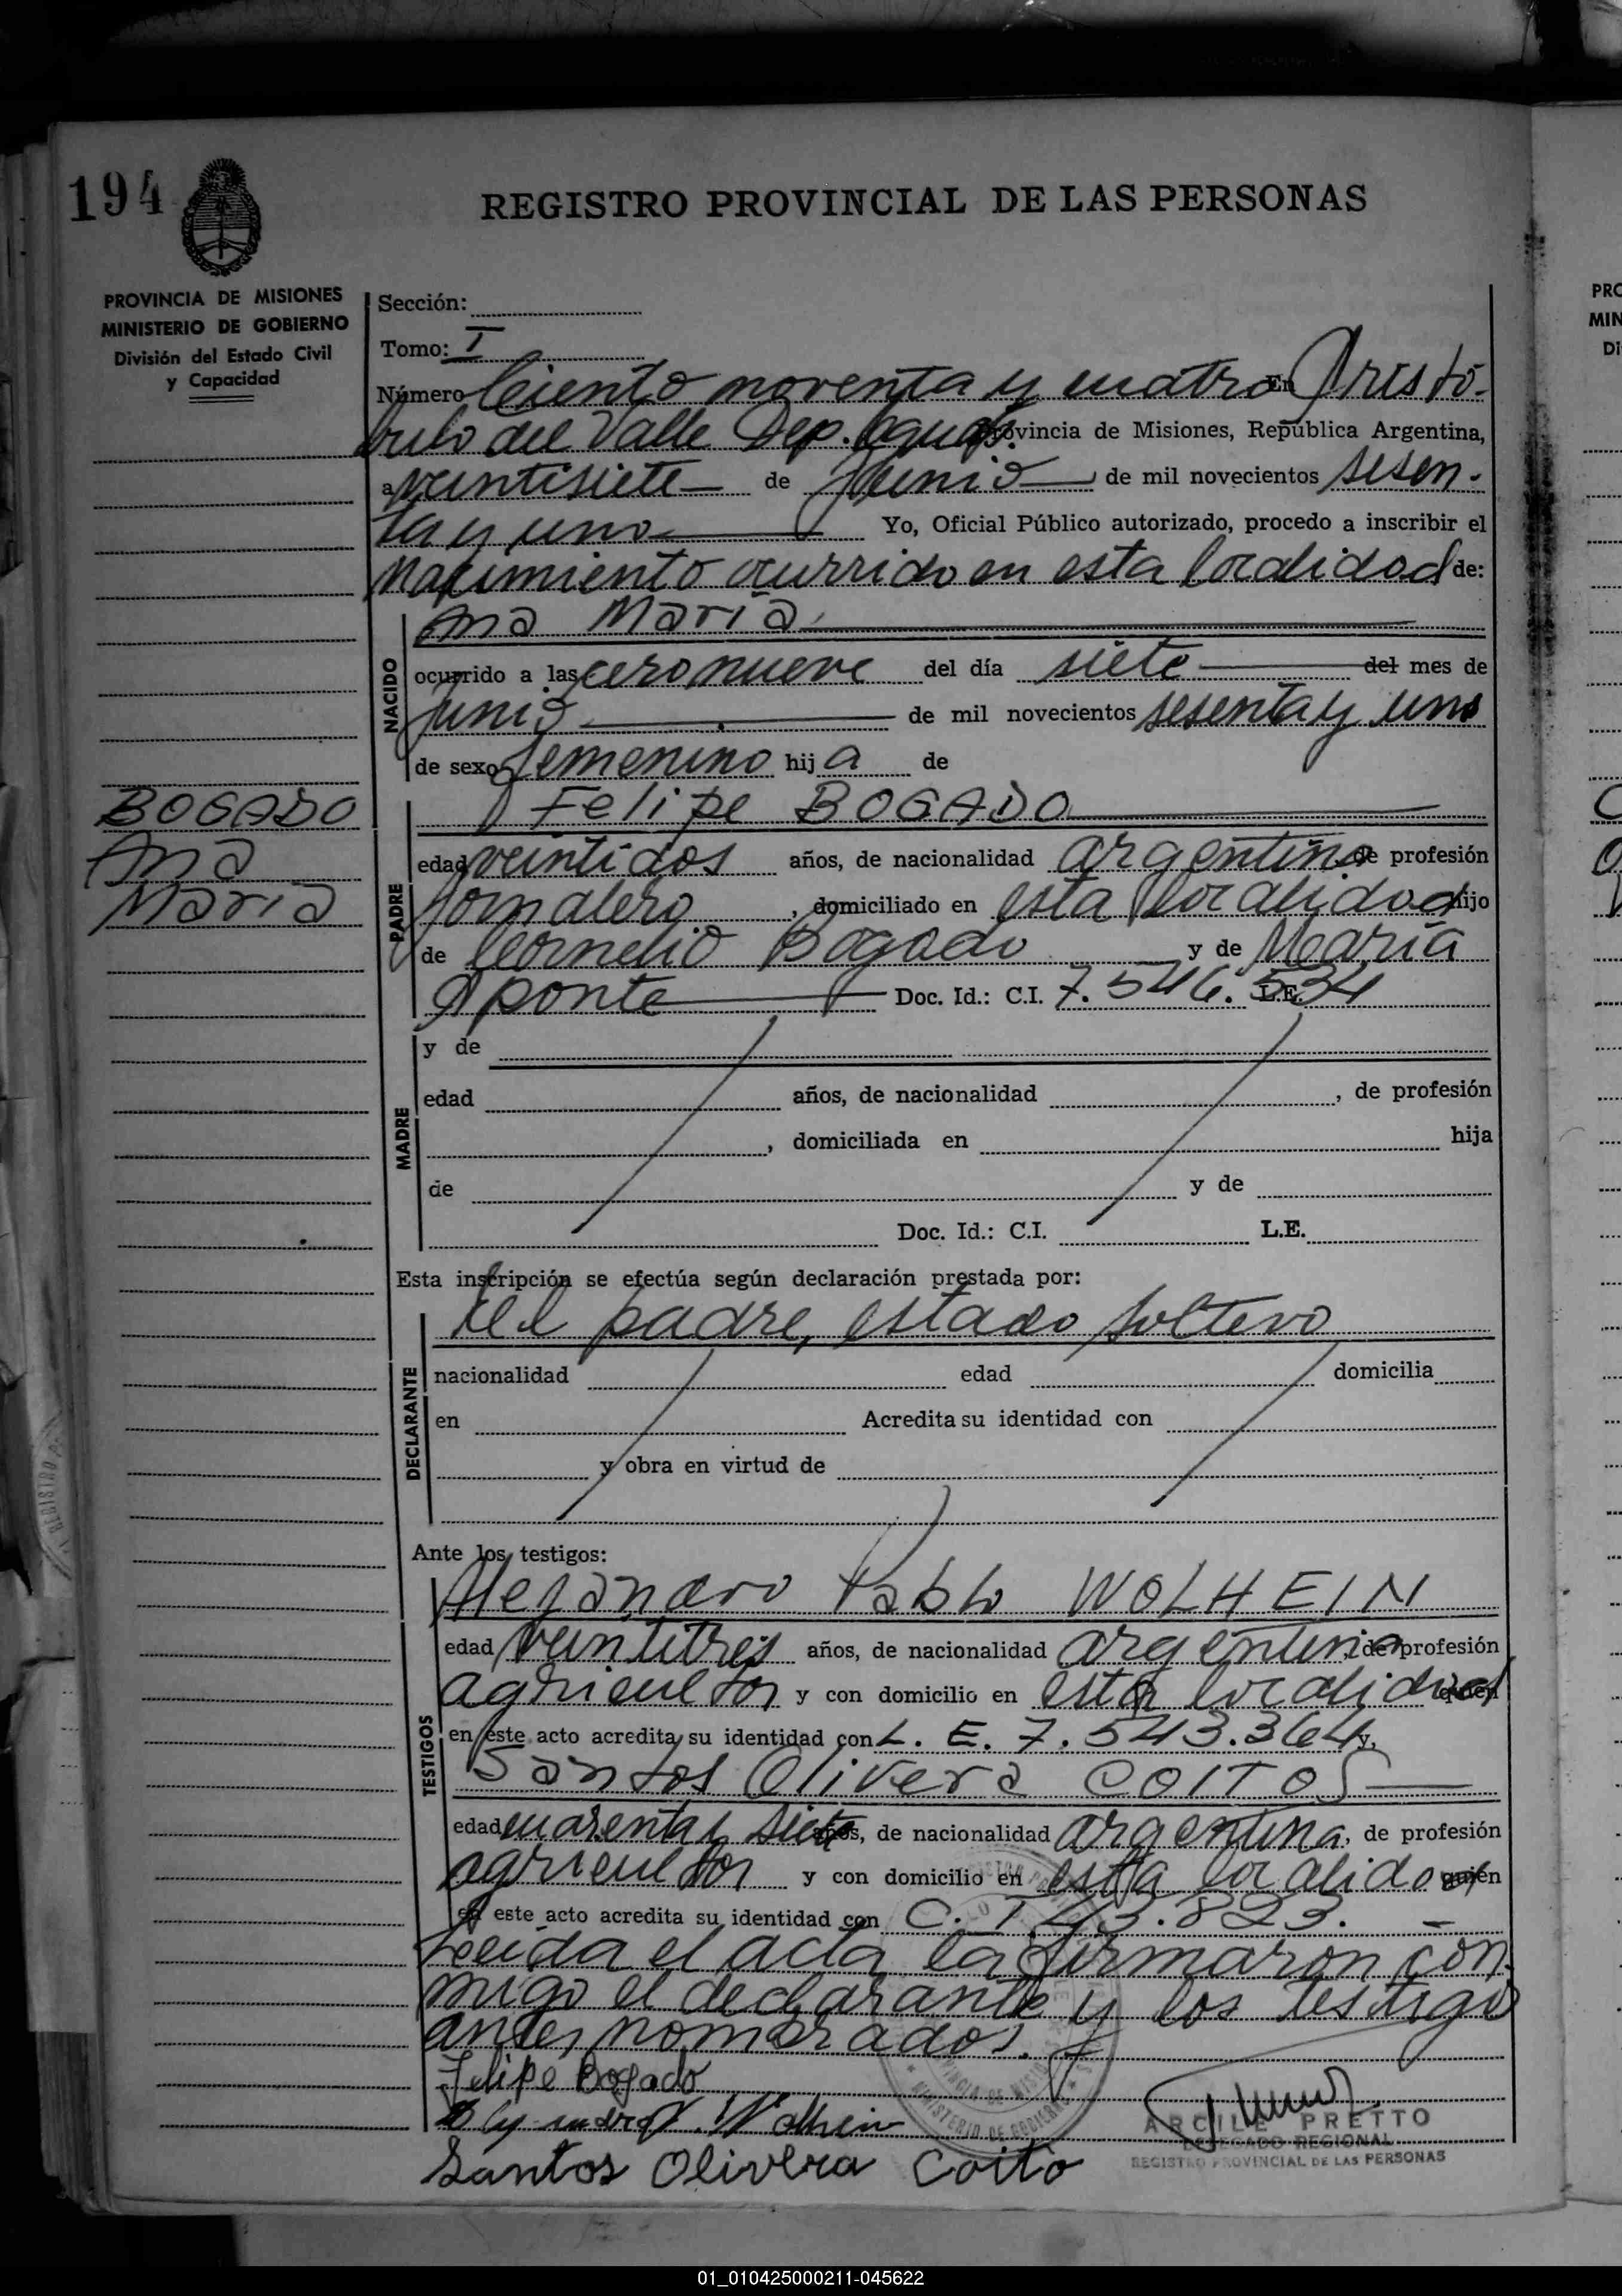 194
REGISTRO PROVINCIAL DE LAS PERSONAS
PROVINCIA DE MISIONES
MINISTERIO DE GOBIERNO
División del Estado Civil
y Capacidad
Sección:
Tomo: I
Número Ciento noventa y cuatro En Aristó-
bulo del Valle Dep. Cainguás Provincia de Misiones, República Argentina,
a veintisiete de Junio de mil novecientos sesen-
ta y uno Yo, Oficial Público autorizado, procedo a inscribir el
Nacimiento ocurrido en esta localidad de:
NACIDO
Ana María
ocurrido a las cero nueve del día siete del mes de
Junio de mil novecientos sesenta y uno
de sexo femenino hij a de
BOGADO
Ana
María
PADRE
Felipe BOGADO
edad veintidos años, de nacionalidad argentino de profesión
Jornalero, domiciliado en esta localidad hijo
de Cornelio Bogado y de María
Aponte Doc. Id.: C.I. 7.546.534 L.E.
MADRE
y de
edad años, de nacionalidad , de profesión
, domiciliada en hija
de y de
Doc. Id.: C.I. L.E.
Esta inscripción se efectúa según declaración prestada por:
DECLARANTE
el padre, estado soltero
nacionalidad edad domicilia
en Acredita su identidad con
y obra en virtud de
Ante los testigos:
TESTIGOS
Alejandro Pablo WOLHEIN
edad veintitres años, de nacionalidad argentina, de profesión
agricultor y con domicilio en esta localidad quien
en este acto acredita su identidad con L. E. 7.543.364 y,
Santos Olivera COITOS
edad cuarenta y siete años, de nacionalidad argentina, de profesión
agricultor y con domicilio en esta localidad quien
en este acto acredita su identidad con C. I 43.823. -
Leida el acta la firmaron con-
migo el declarante y los testigos
antes nombrados.
Felipe Bogado
Wolhein
Santos Olivera Coito
ARCILE PRETTO
DELEGADO REGIONAL
REGISTRO PROVINCIAL DE LAS PERSONAS
01_010425000211-045622